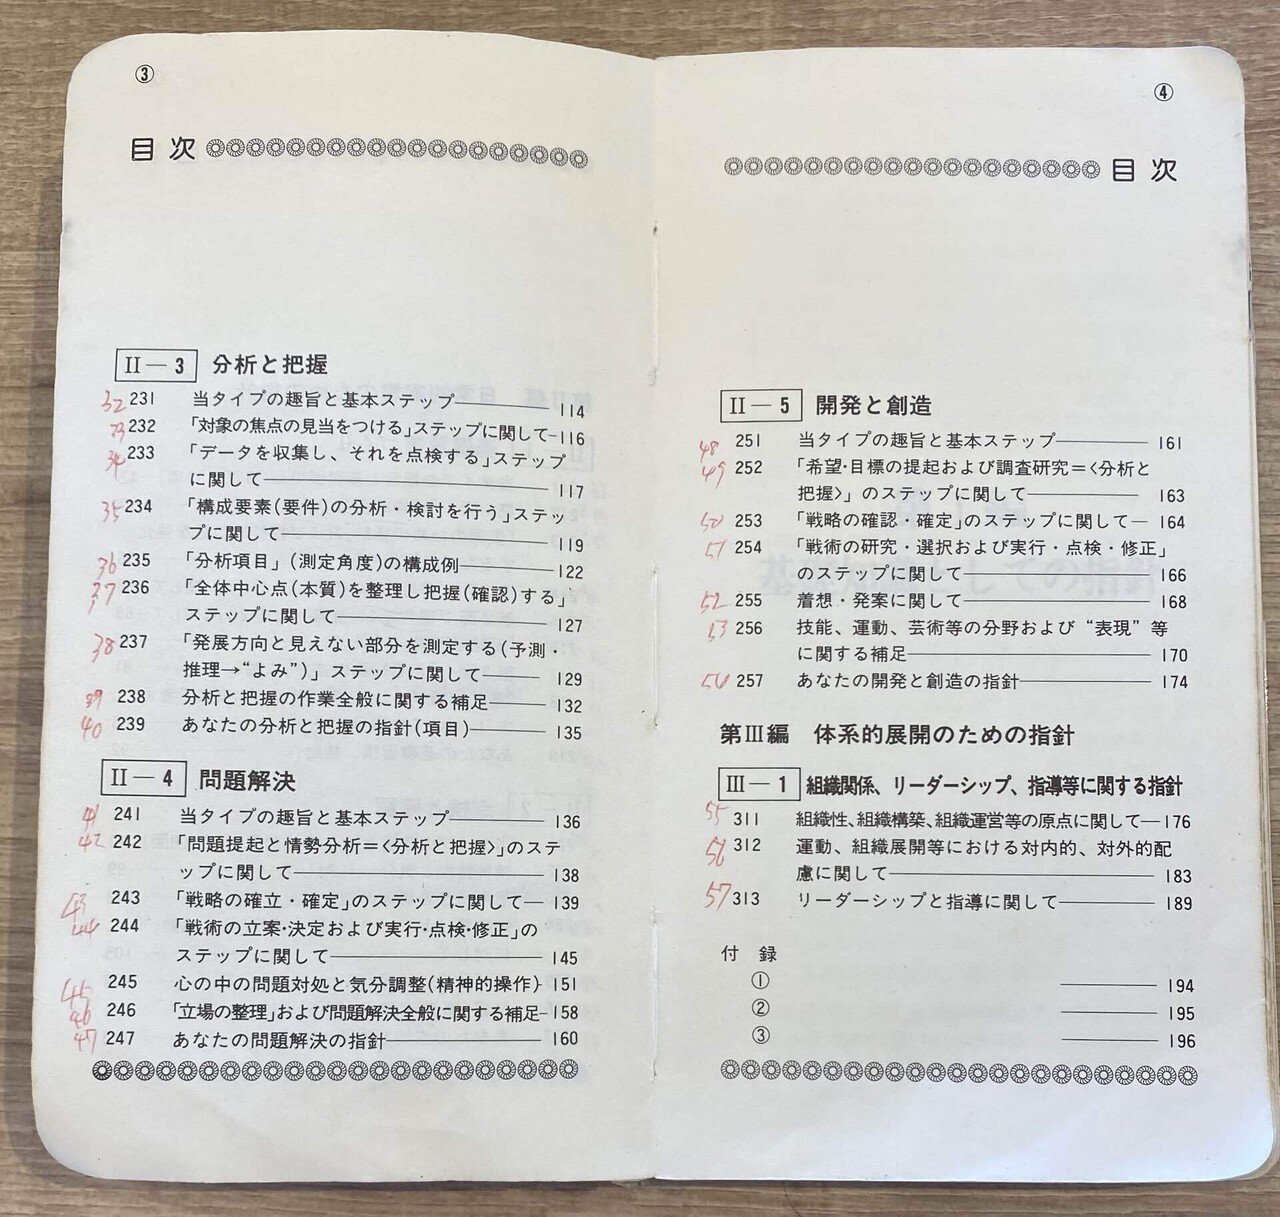 ③
目次
II—3 分析と把握
32 231 当タイプの趣旨と基本ステップ 114
33 232 「対象の焦点の見当をつける」ステップに関して 116
34 233 「データを収集し、それを点検する」ステップ
に関して 117
35 234 「構成要素(要件)の分析・検討を行う」ステッ
プに関して 119
36 235 「分析項目」(測定角度)の構成例 122
37 236 「全体中心点(本質)を整理し把握(確認)する」
ステップに関して 127
38 237 「発展方向と見えない部分を測定する(予測・
推理→“よみ”)」ステップに関して 129
39 238 分析と把握の作業全般に関する補足 132
40 239 あなたの分析と把握の指針(項目) 135
II—4 問題解決
41 241 当タイプの趣旨と基本ステップ 136
42 242 「問題提起と情勢分析=<分析と把握>」のステ
ップに関して 138
43 243 「戦略の確立・確定」のステップに関して 139
44 244 「戦術の立案・決定および実行・点検・修正」の
ステップに関して 145
45 245 心の中の問題対処と気分調整(精神的操作) 151
46 246 「立場の整理」および問題解決全般に関する補足 158
47 247 あなたの問題解決の指針 160
④
目次
II—5 開発と創造
48 251 当タイプの趣旨と基本ステップ 161
49 252 「希望・目標の提起および調査研究=<分析と
把握>」のステップに関して 163
50 253 「戦略の確認・確定」のステップに関して 164
51 254 「戦術の研究・選択および実行・点検・修正」
のステップに関して 166
52 255 着想・発案に関して 168
53 256 技能、運動、芸術等の分野および“表現”等
に関する補足 170
54 257 あなたの開発と創造の指針 174
第III編 体系的展開のための指針
III—1 組織関係、リーダーシップ、指導等に関する指針
55 311 組織性、組織構築、組織運営等の原点に関して 176
56 312 運動、組織展開等における対内的、対外的配
慮に関して 183
57 313 リーダーシップと指導に関して 189
付録
① 194
② 195
③ 196